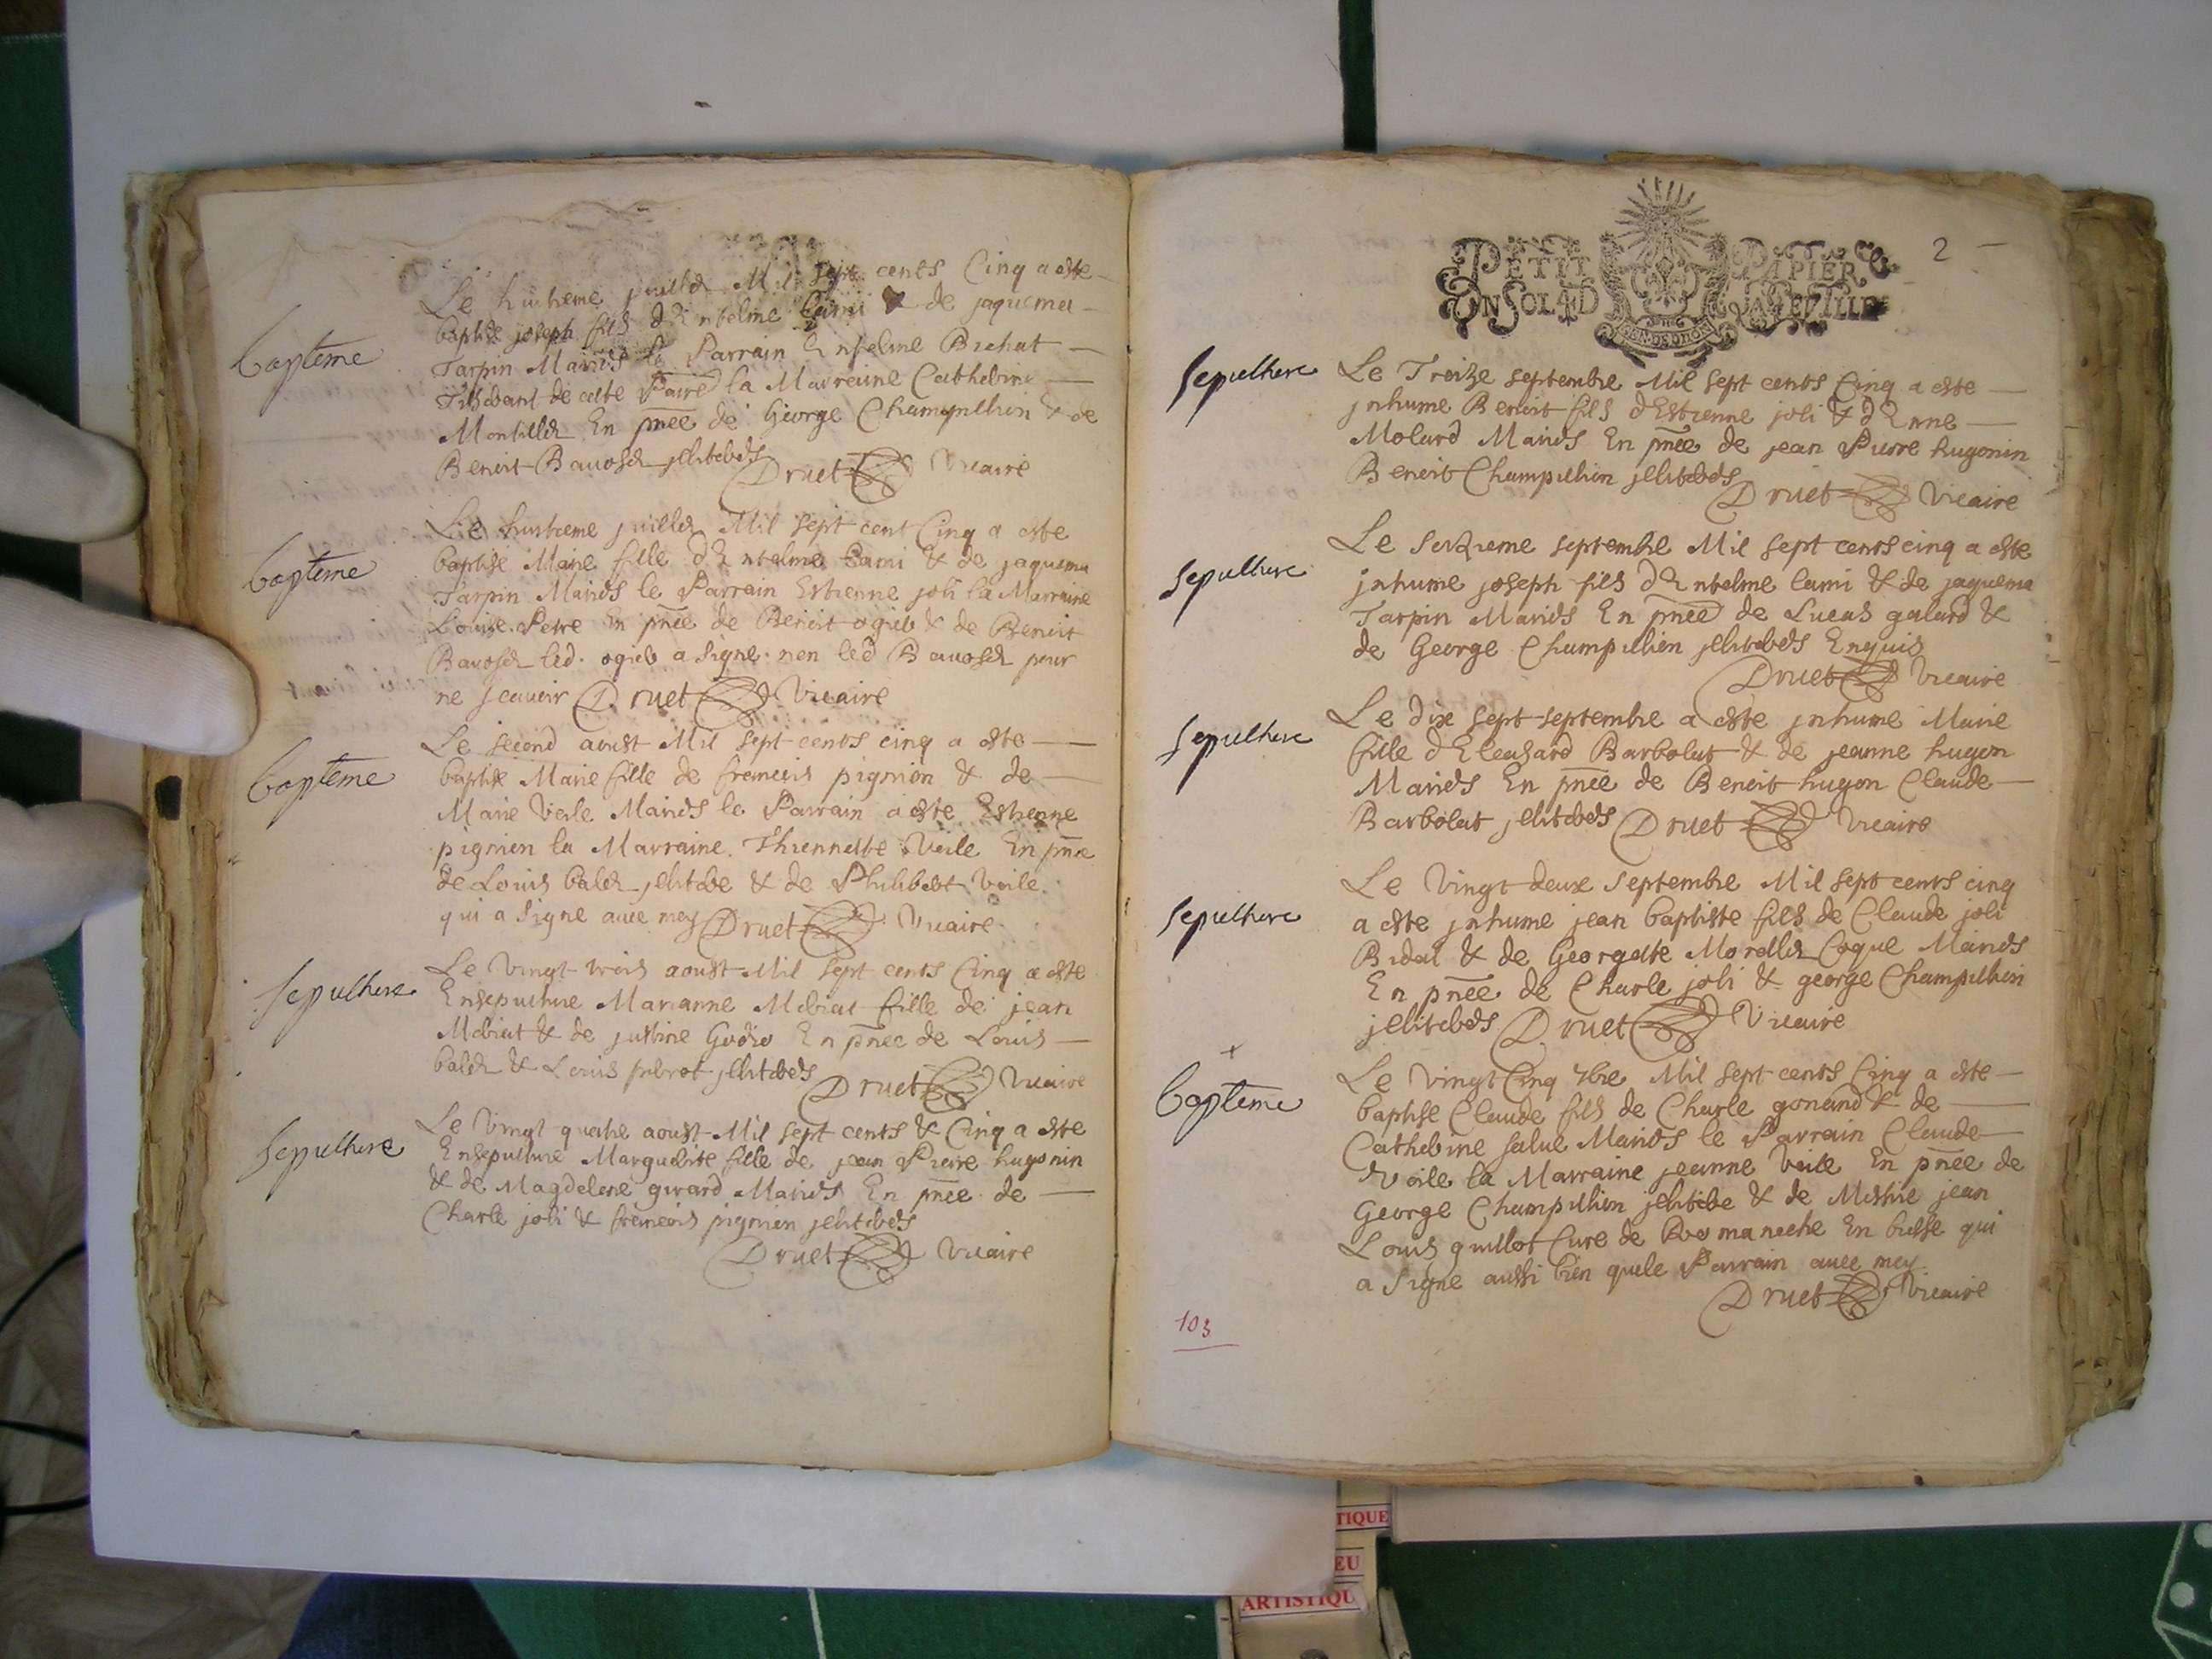 bapteme
Le huitieme juillet Mil sept cents Cinq a este
baptisé joseph fils d'Entelme Lami & de jaquema
Tarpin Mariés Le Parrain Entelme Brehat
de cette la Marraine Catherine
Montillet En pnēe de George Champillion & de
Benoit Bavoset jllitterés
Druet Vicaire
bapteme
Le huitieme juillet Mil sept cent Cinq a este
baptisé Marie fille d'Entelme Lami & de jaquema
Tarpin Mariés le Parrain Estienne joli la Marraine
Louise Petre En pnēe de Benoit ogier & de Benoit
Bavoset led. ogier a signe non led Bavoset pour
ne scavoir Druet Vicaire
bapteme
Le second aoust Mil sept cents cinq a este
baptisé Marie fille de francois pignion & de
Marie Veile Mariés le Parrain a este Estienne
pignion la Marraine Thiennette Veile En pnēe
de Louis balet jllitere & de Philibert Veile
qui a signe avec moy Druet Vicaire
sepulture
Le Vingt trois aoust Mil sept cents Cinq a este
Ensepulture Marianne Mobiat fille de jean
Mobiat & de justine En pnēe de Louis
balet & Louis jllitterés
Druet Vicaire
sepulture
Le Vingt quatre aoust Mil sept cents & Cinq a este
Ensepulture Marguerite fille de jean Pierre hugonin
& de Magdelene girard Mariés En pnēe de
Charle joli & francois pignion jllitterés
Druet Vicaire
2
PETIT PAPIER
UN SOL 4D LA FEUILLE
sepulture
Le Treize septembre Mil sept cents Cinq a este
jnhume Benoit fils d'Estienne joli & d'Enne
Molard Mariés En pnēe de jean Pierre hugonin
Benoit Champillion jllitterés
Druet Vicaire
sepulture
Le seizieme septembre Mil sept cents cinq a este
jnhume joseph fils d'Entelme lami & de jaquema
Tarpin Mariés En pnēe de Lucas galard &
de George Champillion jllitterés Enquis
Druet Vicaire
sepulture
Le dix sept septembre a este jnhume Marie
fille d'Eleasard Barbolat & de jeanne hugon
Mariés En pnēe de Benoit hugon Claude
Barbolat jllitterés Druet Vicaire
sepulture
Le Vingt deux septembre Mil sept cents cinq
a este jnhume jean baptiste fils de Claude joli
Bidal & de Georgette Morellet Coque Mariés
En pnēe de Charle joli & george Champillion
jllitterés Druet Vicaire
+
bapteme
Le Vingt Cinq 7bre Mil sept cents Cinq a este
baptise Claude fils de Charle gonand & de
Catherine salue Mariés le Parrain Claude
Voile la Marraine jeanne Veile En pnēe de
George Champillion jllitere & de Messire jean
Louis guillot Cure de Romaneche En bresse qui
a signe aussi bien quele Parrain avec moy
Druet Vicaire
103
TIQUE
EU
ARTISTIQU